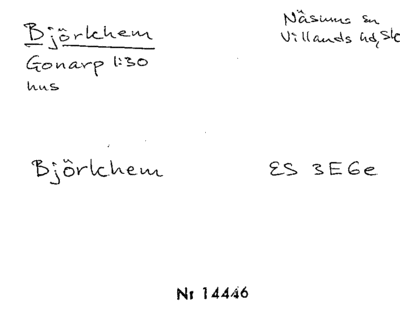 Björkhem
Gonarp 1:30
hus
Näsums sn
Villands hd, Sk
Björkhem
ES 3E6e
Nr 14446